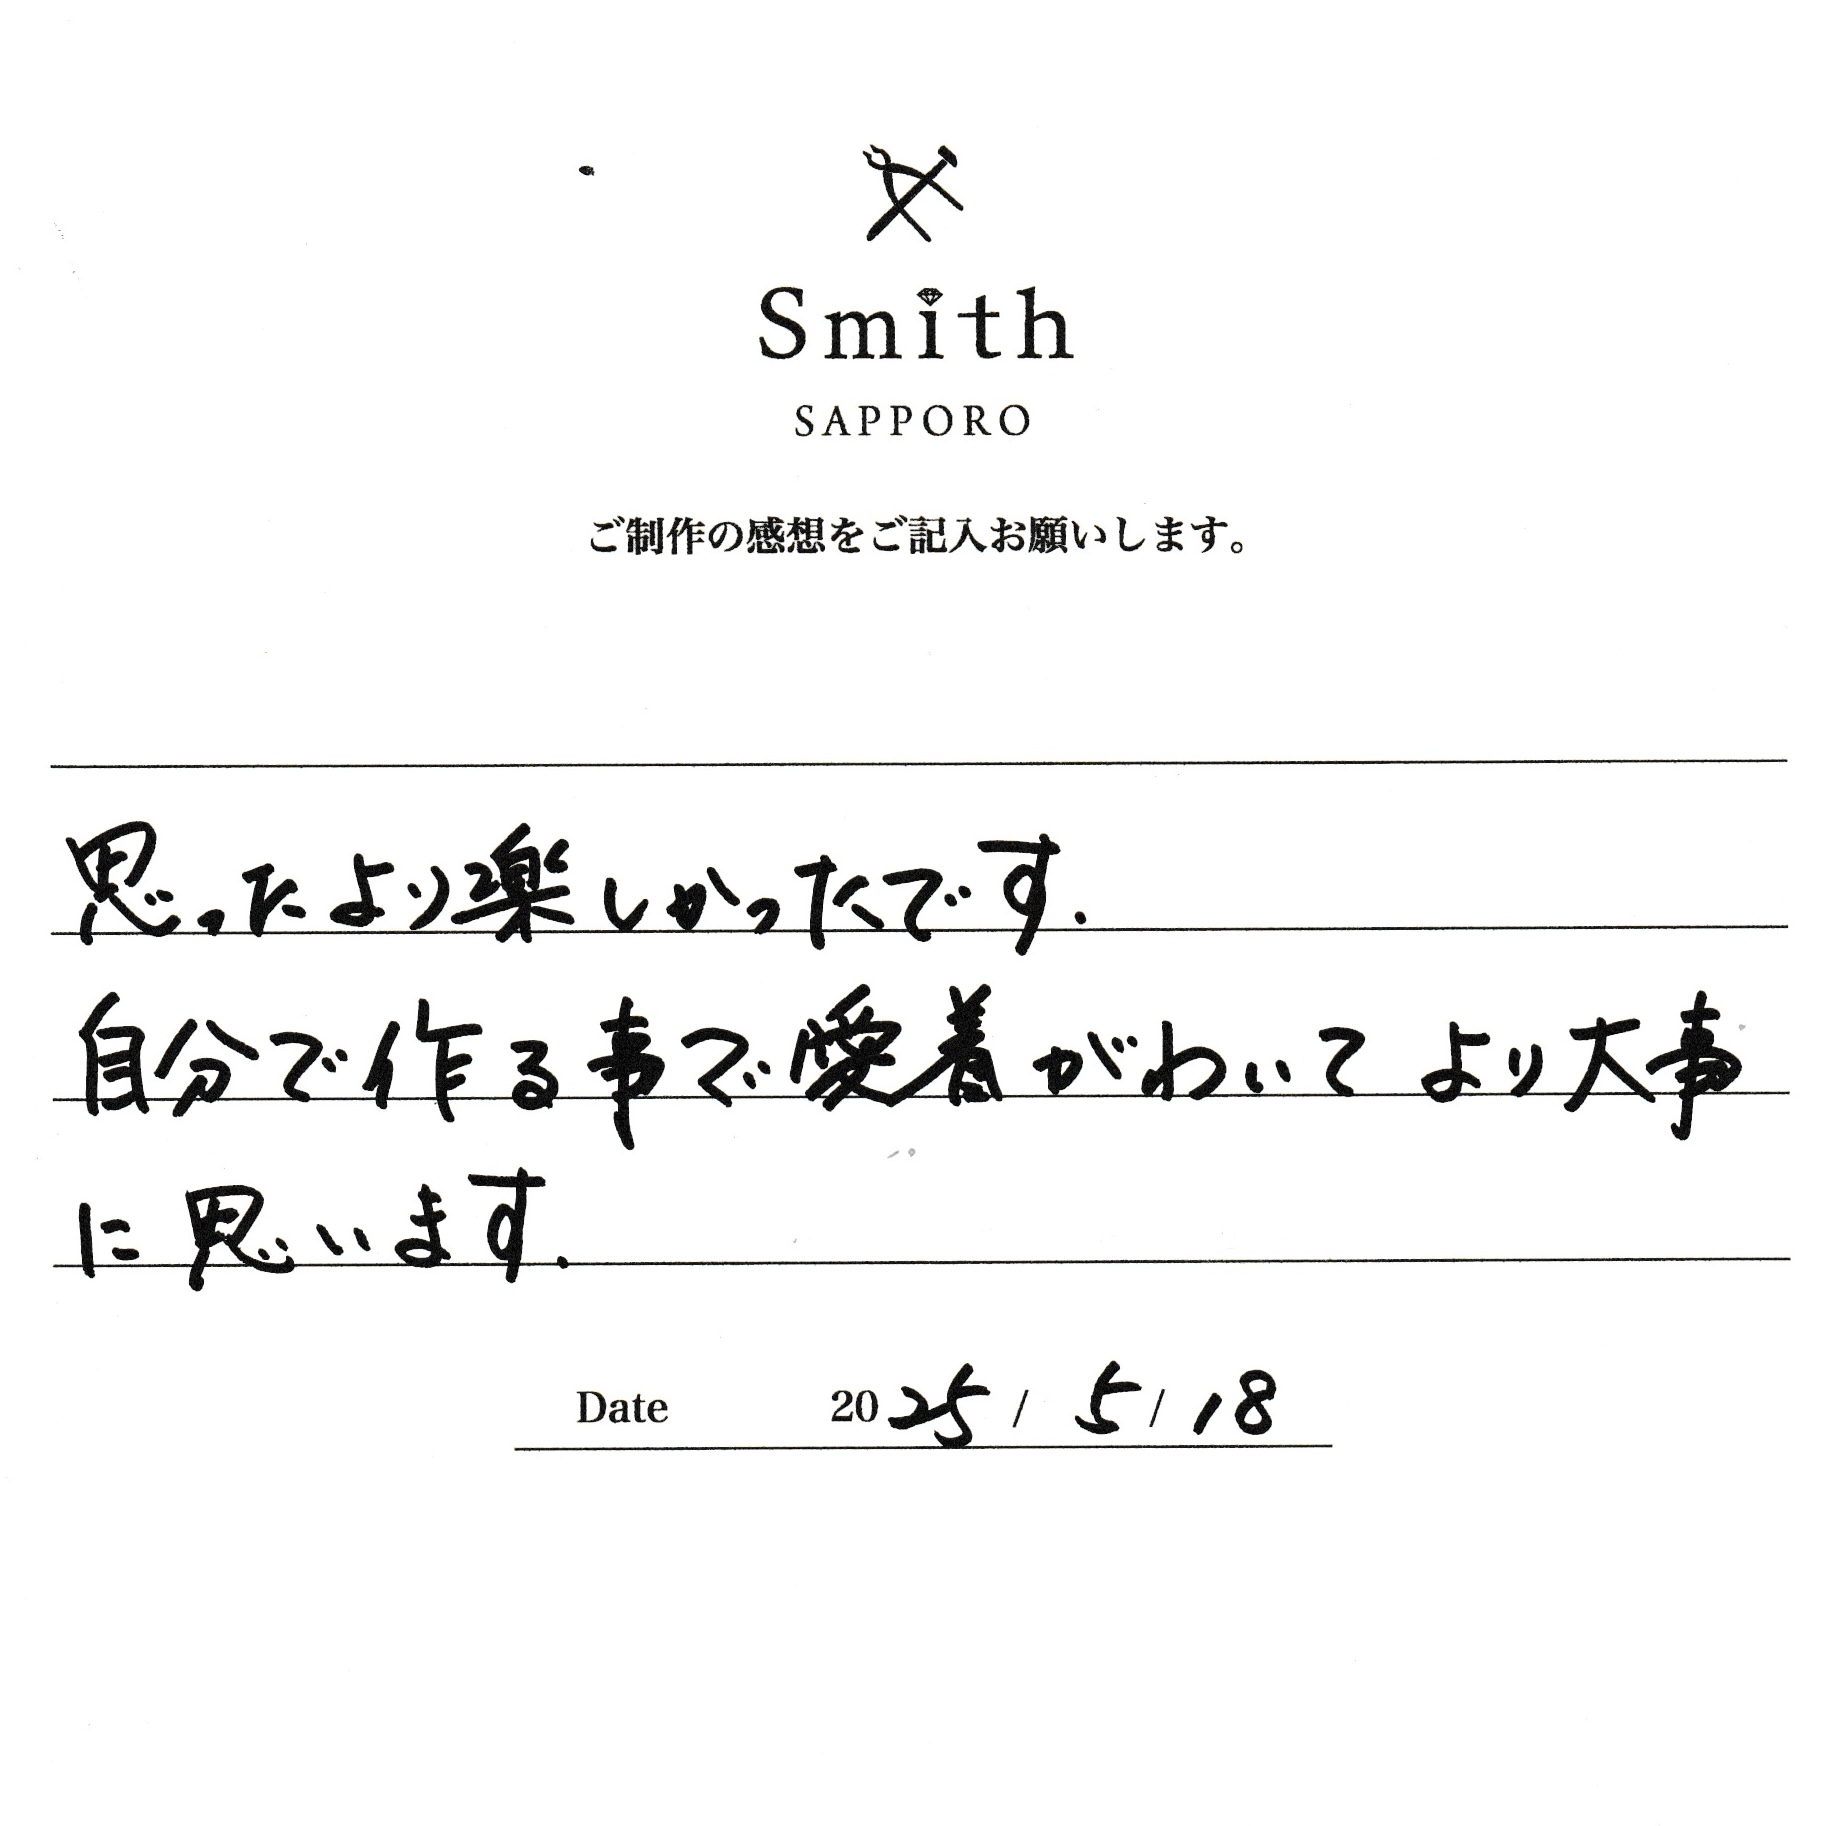 Smith
SAPPORO
ご制作の感想をご記入お願いします。
思ったより楽しかったです.
自分で作る事で愛着がわいてより大事
に思います.
Date 2025 / 5 / 18